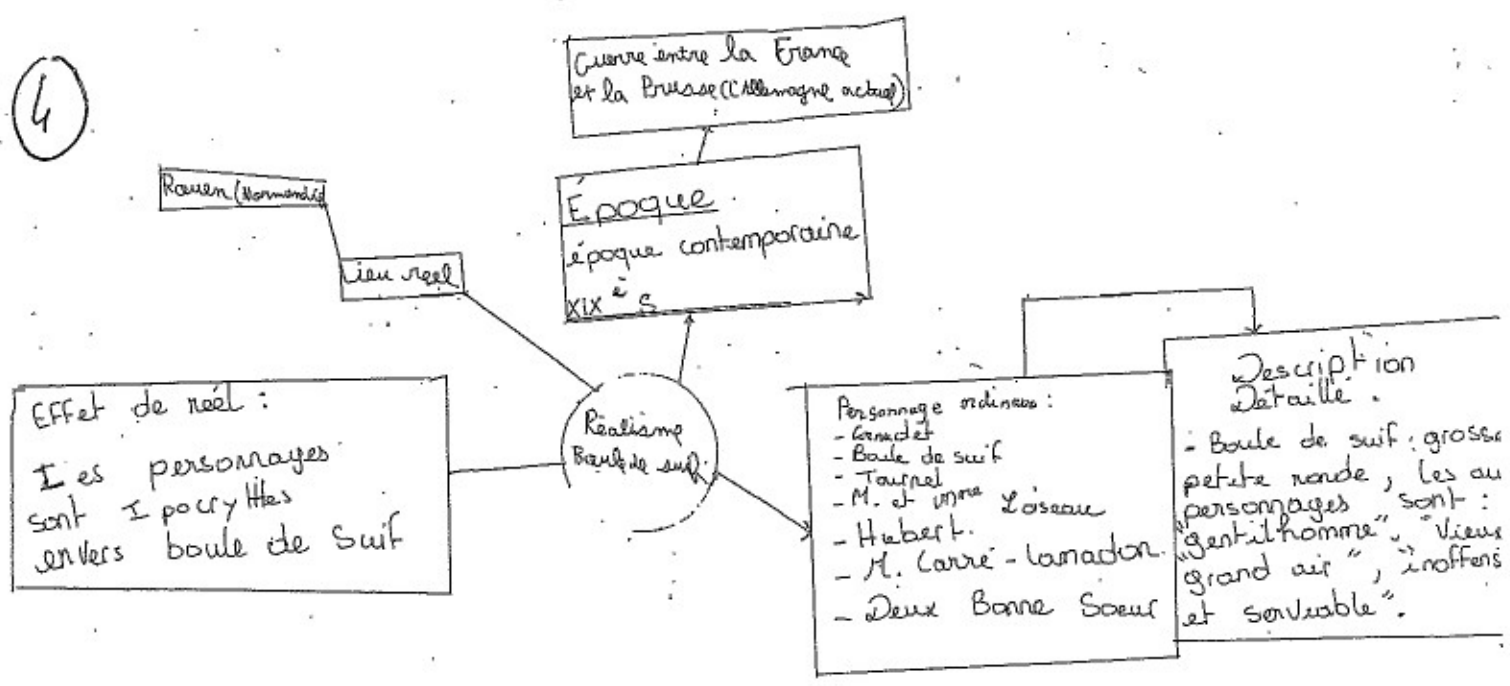 4
Guerre entre la France
et la Prusse (l'Allemagne actuel)
Époque
époque contemporaine
XIX è S
Rouen (Normandie
Lieu reel
Effet de réel :
Les personnages
sont Ipocryttes
envers boule de Suif
Réalisme
Boule de suif.
Personnage ordinaire :
- Cornudet
- Boule de suif
- Tournel
- M. et Mme Loiseau
- Hubert.
- M. Carré-Lamadon.
- Deux Bonne Soeur
Description
Détaillé.
- Boule de suif : grosse
petite ronde, les au
personnages sont :
"gentilhomme", "Vieux
grand air", inoffens
et serviable".